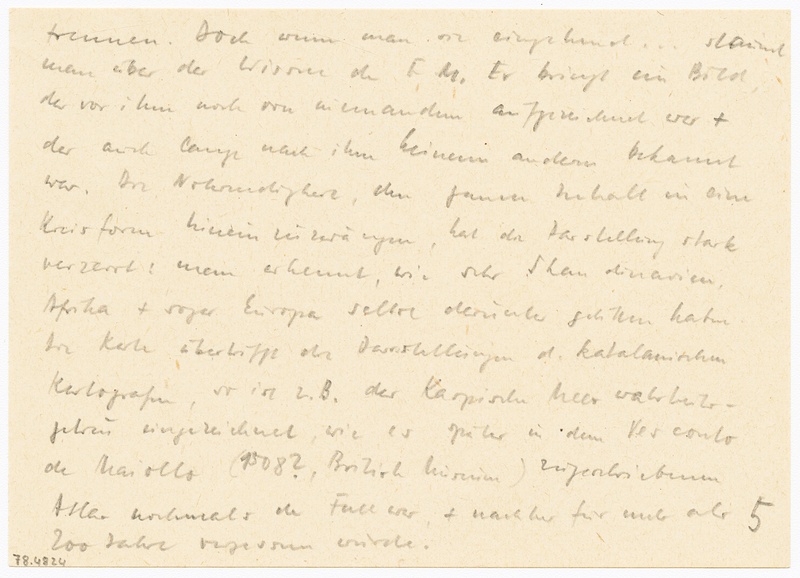 trennen. Doch wenn man sie eingehend... staunt
man über das Wissen des F. M. Er bringt ein Bild,
das vor ihm noch von niemandem aufgezeichnet war +
das auch lange nach ihm keinem andern bekannt
war. Die Notwendigkeit, den ganzen Inhalt in eine
Kreisform hineinzuzwängen, hat die Darstellung stark
verzerrt: man erkennt, wie sehr Skandinavien,
Afrika + sogar Europa selbst darunter gelitten haben.
Die Karte übertrifft die Darstellungen d. katalanischen
Kartografen, so ist z.B. das Kaspische Meer wahrheits-
getreu eingezeichnet, wie es später in dem Vesconto
de Maiollo (1508?, British Museum) zugeschriebenen
Atlas nochmals der Fall war, + nachher für mehr als 5
200 Jahre vergessen wurde.
78.4824